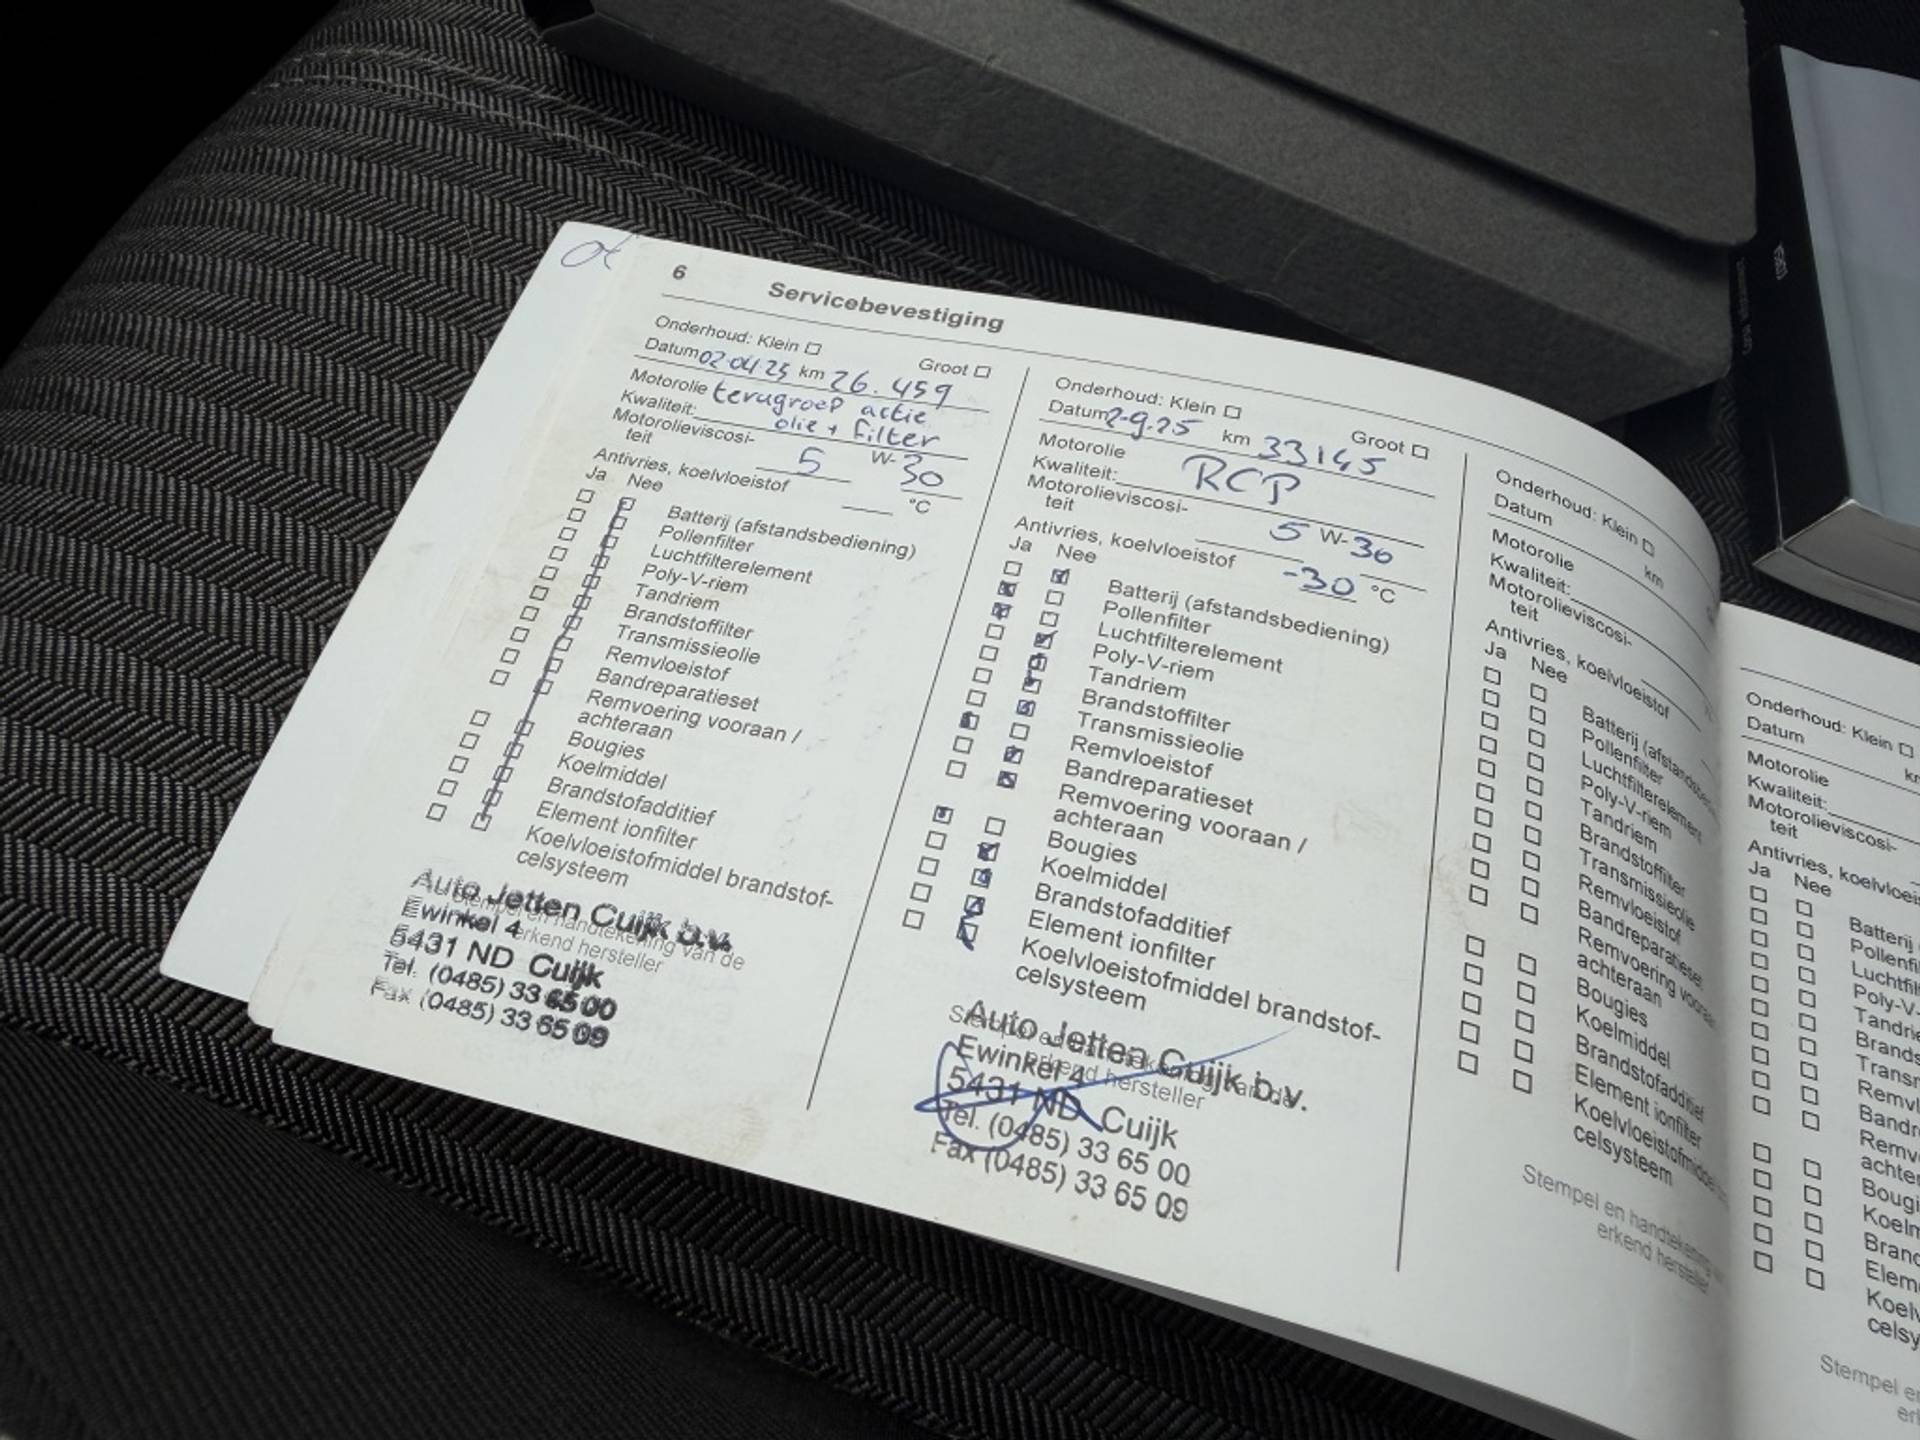 of
6 Servicebevestiging
Onderhoud: Klein ☐ Groot ☐
Datum 02-04-25 km 26.459
Motorolie terugroep actie
Kwaliteit: olie + filter
Motorolieviscosi-
teit 5 W-30
Antivries, koelvloeistof °C
Ja Nee
Batterij (afstandsbediening)
Pollenfilter
Luchtfilterelement
Poly-V-riem
Tandriem
Brandstoffilter
Transmissieolie
Remvloeistof
Bandreparatieset
Remvoering vooraan /
achteraan
Bougies
Koelmiddel
Brandstofadditief
Element ionfilter
Koelvloeistofmiddel brandstof-
celsysteem
Stempel en handtekening van de
erkend hersteller
Auto Jetten Cuijk b.v.
Ewinkel 4
5431 ND Cuijk
Tel. (0485) 33 65 00
Fax (0485) 33 65 09
Onderhoud: Klein ☐ Groot ☐
Datum 2-9-25 km 33145
Motorolie
Kwaliteit: RCP
Motorolieviscosi-
teit 5 W-30
Antivries, koelvloeistof -30 °C
Ja Nee
Batterij (afstandsbediening)
Pollenfilter
Luchtfilterelement
Poly-V-riem
Tandriem
Brandstoffilter
Transmissieolie
Remvloeistof
Bandreparatieset
Remvoering vooraan /
achteraan
Bougies
Koelmiddel
Brandstofadditief
Element ionfilter
Koelvloeistofmiddel brandstof-
celsysteem
Stempel en handtekening van de
erkend hersteller
Auto Jetten Cuijk b.v.
Ewinkel 4
5431 ND Cuijk
Tel. (0485) 33 65 00
Fax (0485) 33 65 09
Onderhoud: Klein ☐
Datum km
Motorolie
Kwaliteit:
Motorolieviscosi-
teit
Antivries, koelvloeistof
Ja Nee
Batterij (afstandsbe
Pollenfilter
Luchtfilterelement
Poly-V-riem
Tandriem
Brandstoffilter
Transmissieolie
Remvloeistof
Bandreparatieset
Remvoering voora
achteraan
Bougies
Koelmiddel
Brandstofadditief
Element ionfilter
Koelvloeistofmidde
celsysteem
Stempel en handtekening
erkend hersteller
Onderhoud: Klein ☐
Datum km
Motorolie
Kwaliteit:
Motorolieviscosi-
teit
Antivries, koelvloeis
Ja Nee
Batterij
Pollenfi
Luchtfil
Poly-V-
Tandrie
Brands
Transm
Remvl
Bandre
Remvo
achter
Bougi
Koelm
Brand
Elem
Koelv
celsy
Stempel e
er